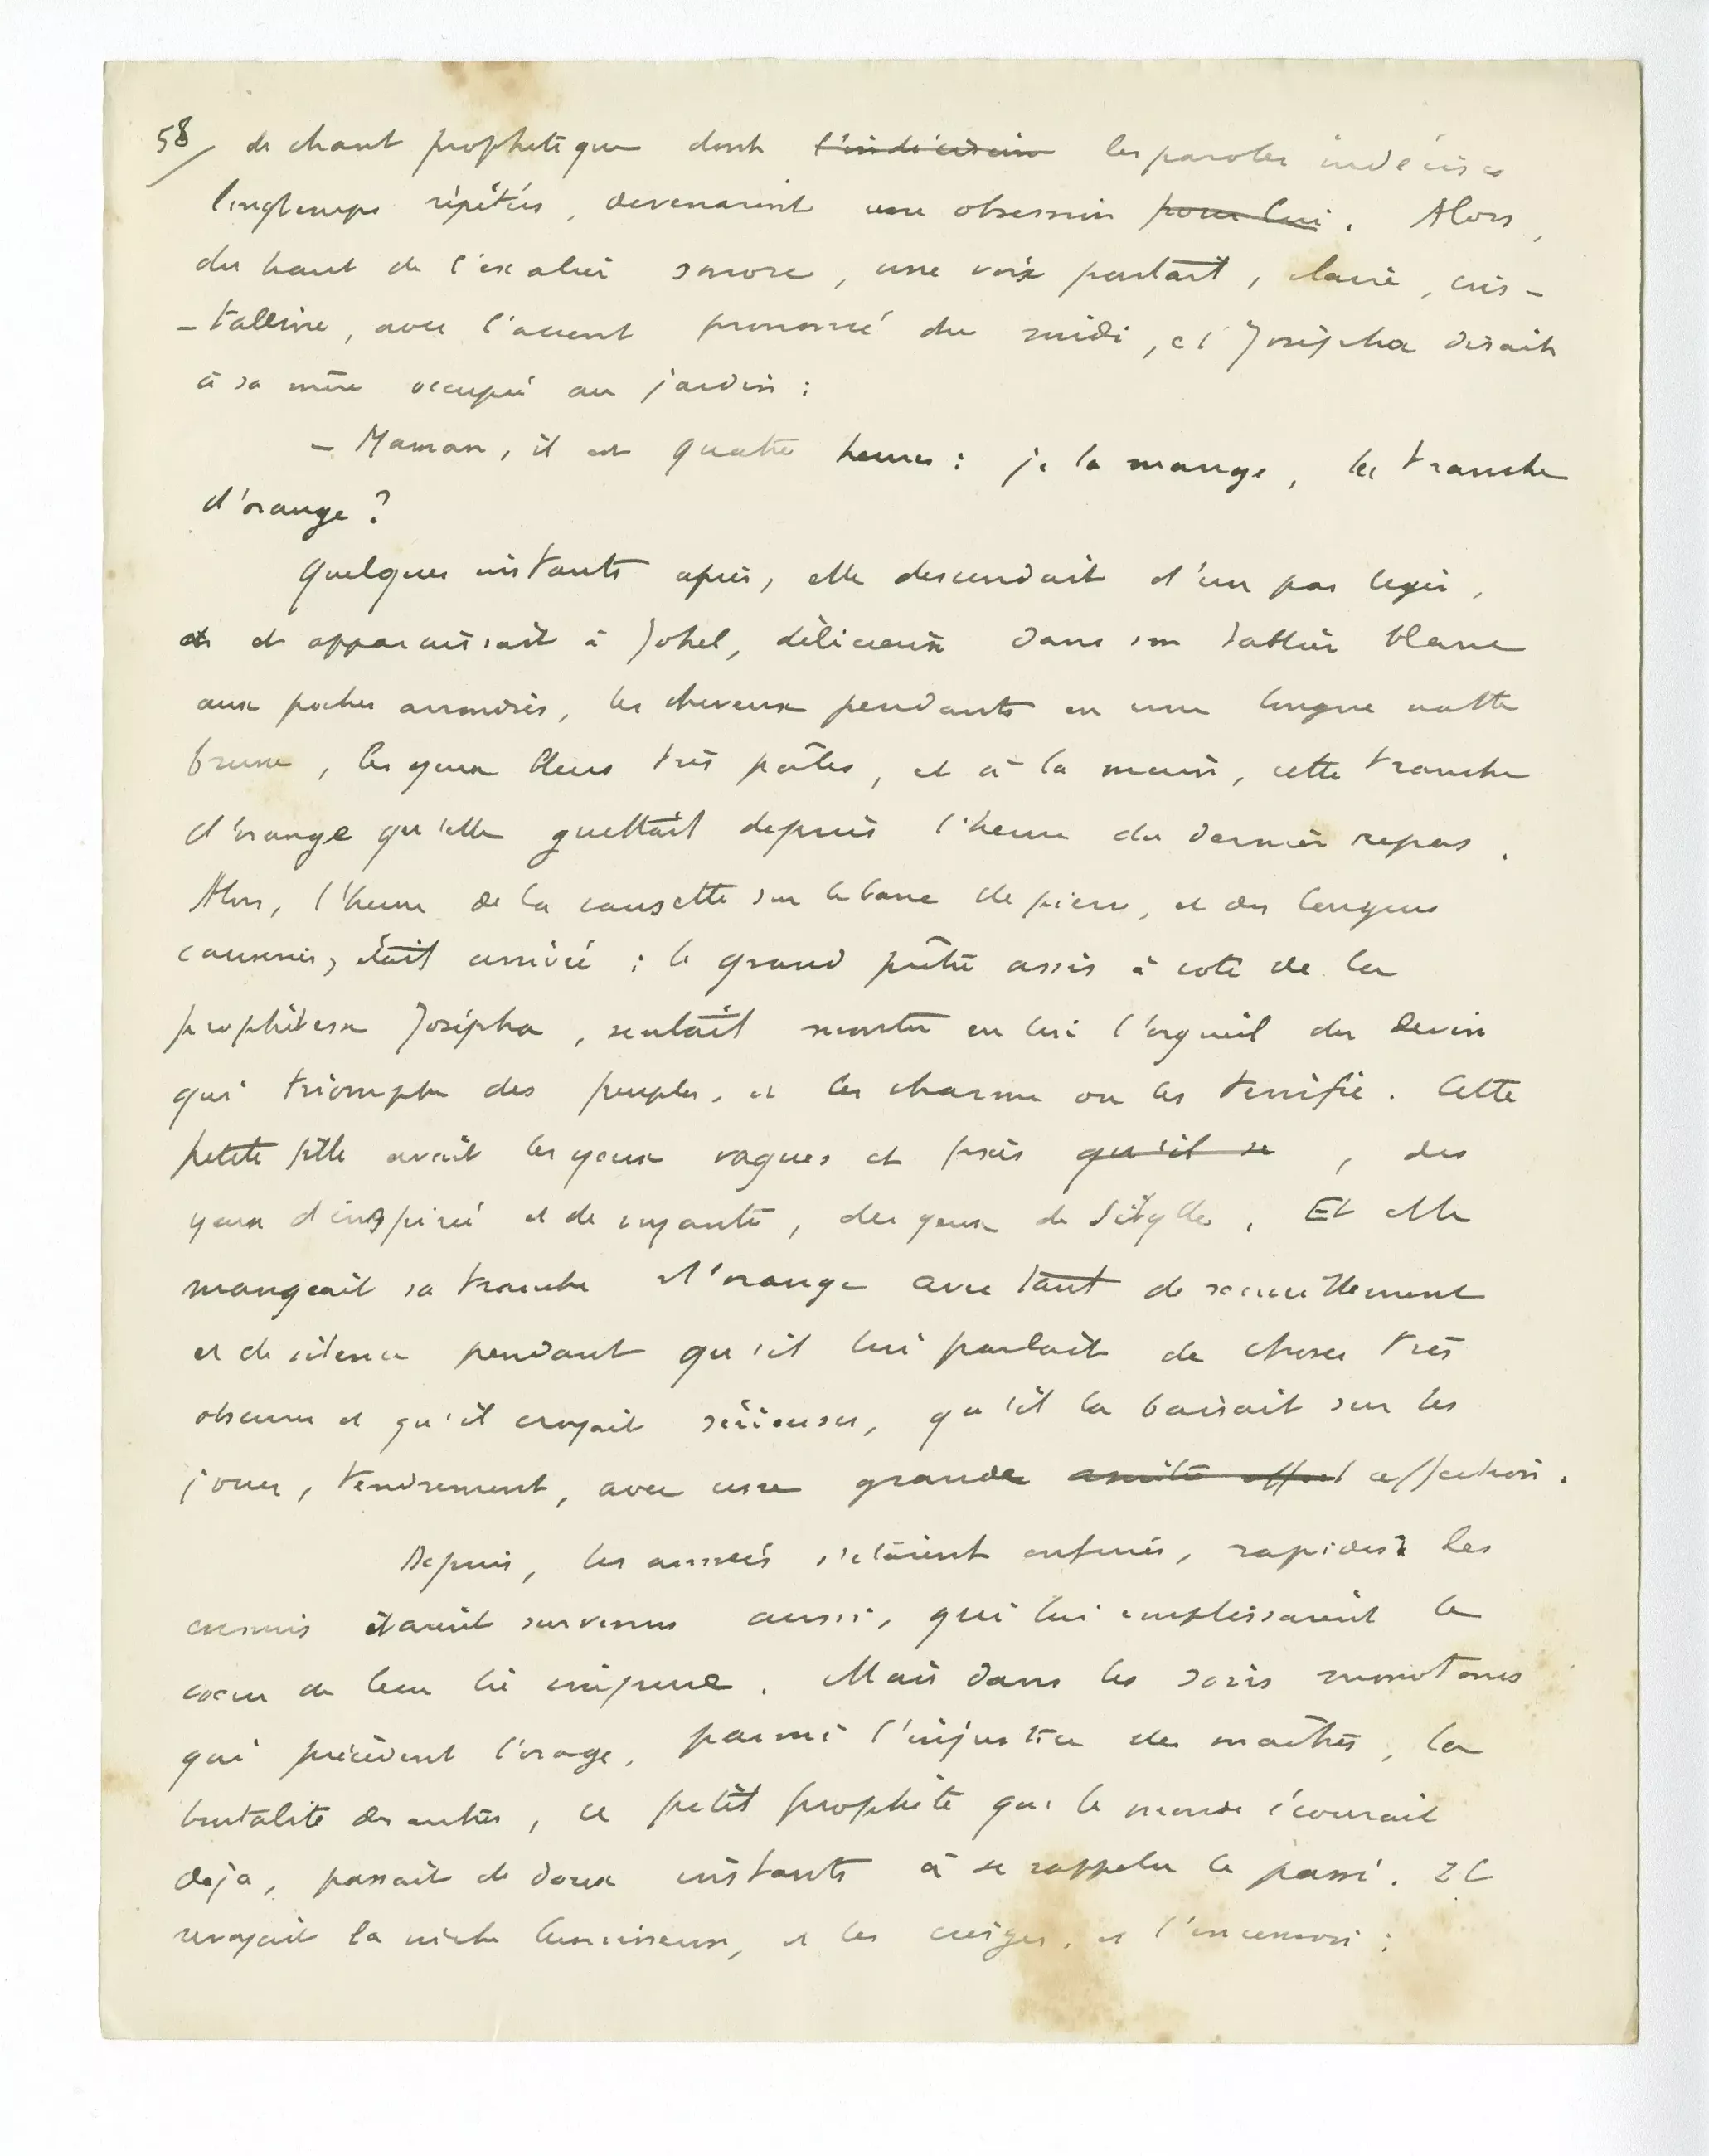 58/ de chant prophétique dont l'indécision les paroles indécises
longtemps répétées, devenaient une obsession pour lui. Alors,
du haut de l'escalier sonore, une voix partait, claire, cris-
-talline, avec l'accent prononcé du midi, et Josépha disait
à sa mère occupée au jardin :
– Maman, il est quatre heures : je la mange, la tranche
d'orange ?
Quelques instants après, elle descendait d'un pas léger,
et apparaissait à Johel, délicieuse dans son tablier blanc
aux poches arrondies, les cheveux pendants en une longue natte
brune, les yeux bleus très pâles, et à la main, cette tranche
d'orange qu'elle guettait depuis l'heure du dernier repas.
Alors, l'heure de la causette sur le banc de pierre, et des longues
causeries, était arrivée : le grand prêtre assis à côté de la
prophétesse Josépha, sentait monter en lui l'orgueil du devin
qui triomphe des peuples, et les charme ou les terrifie. Cette
petite fille avait les yeux vagues et pers qu'il se , des
yeux d'inspirée et de voyante, des yeux de Sibylle. Et elle
mangeait sa tranche d'orange avec tant de recueillement
et de silence pendant qu'il lui parlait de choses très
obscures et qu'il croyait sérieuses, qu'il la baisait sur les
joues, tendrement, avec une grande amitié affect affection.
Depuis, les années s'étaient enfuies, rapides les
ennuis étaient survenus aussi, qui lui emplissaient le
cœur de leur lie impure. Mais dans les soirs monotones
qui précèdent l'orage, parmi l'injustice des maîtres, la
brutalité des autres, ce petit prophète que le monde écœurait
déjà, passait de doux instants à se rappeler le passé. Il
revoyait la niche lumineuse, et les cierges, et l'encensoir :